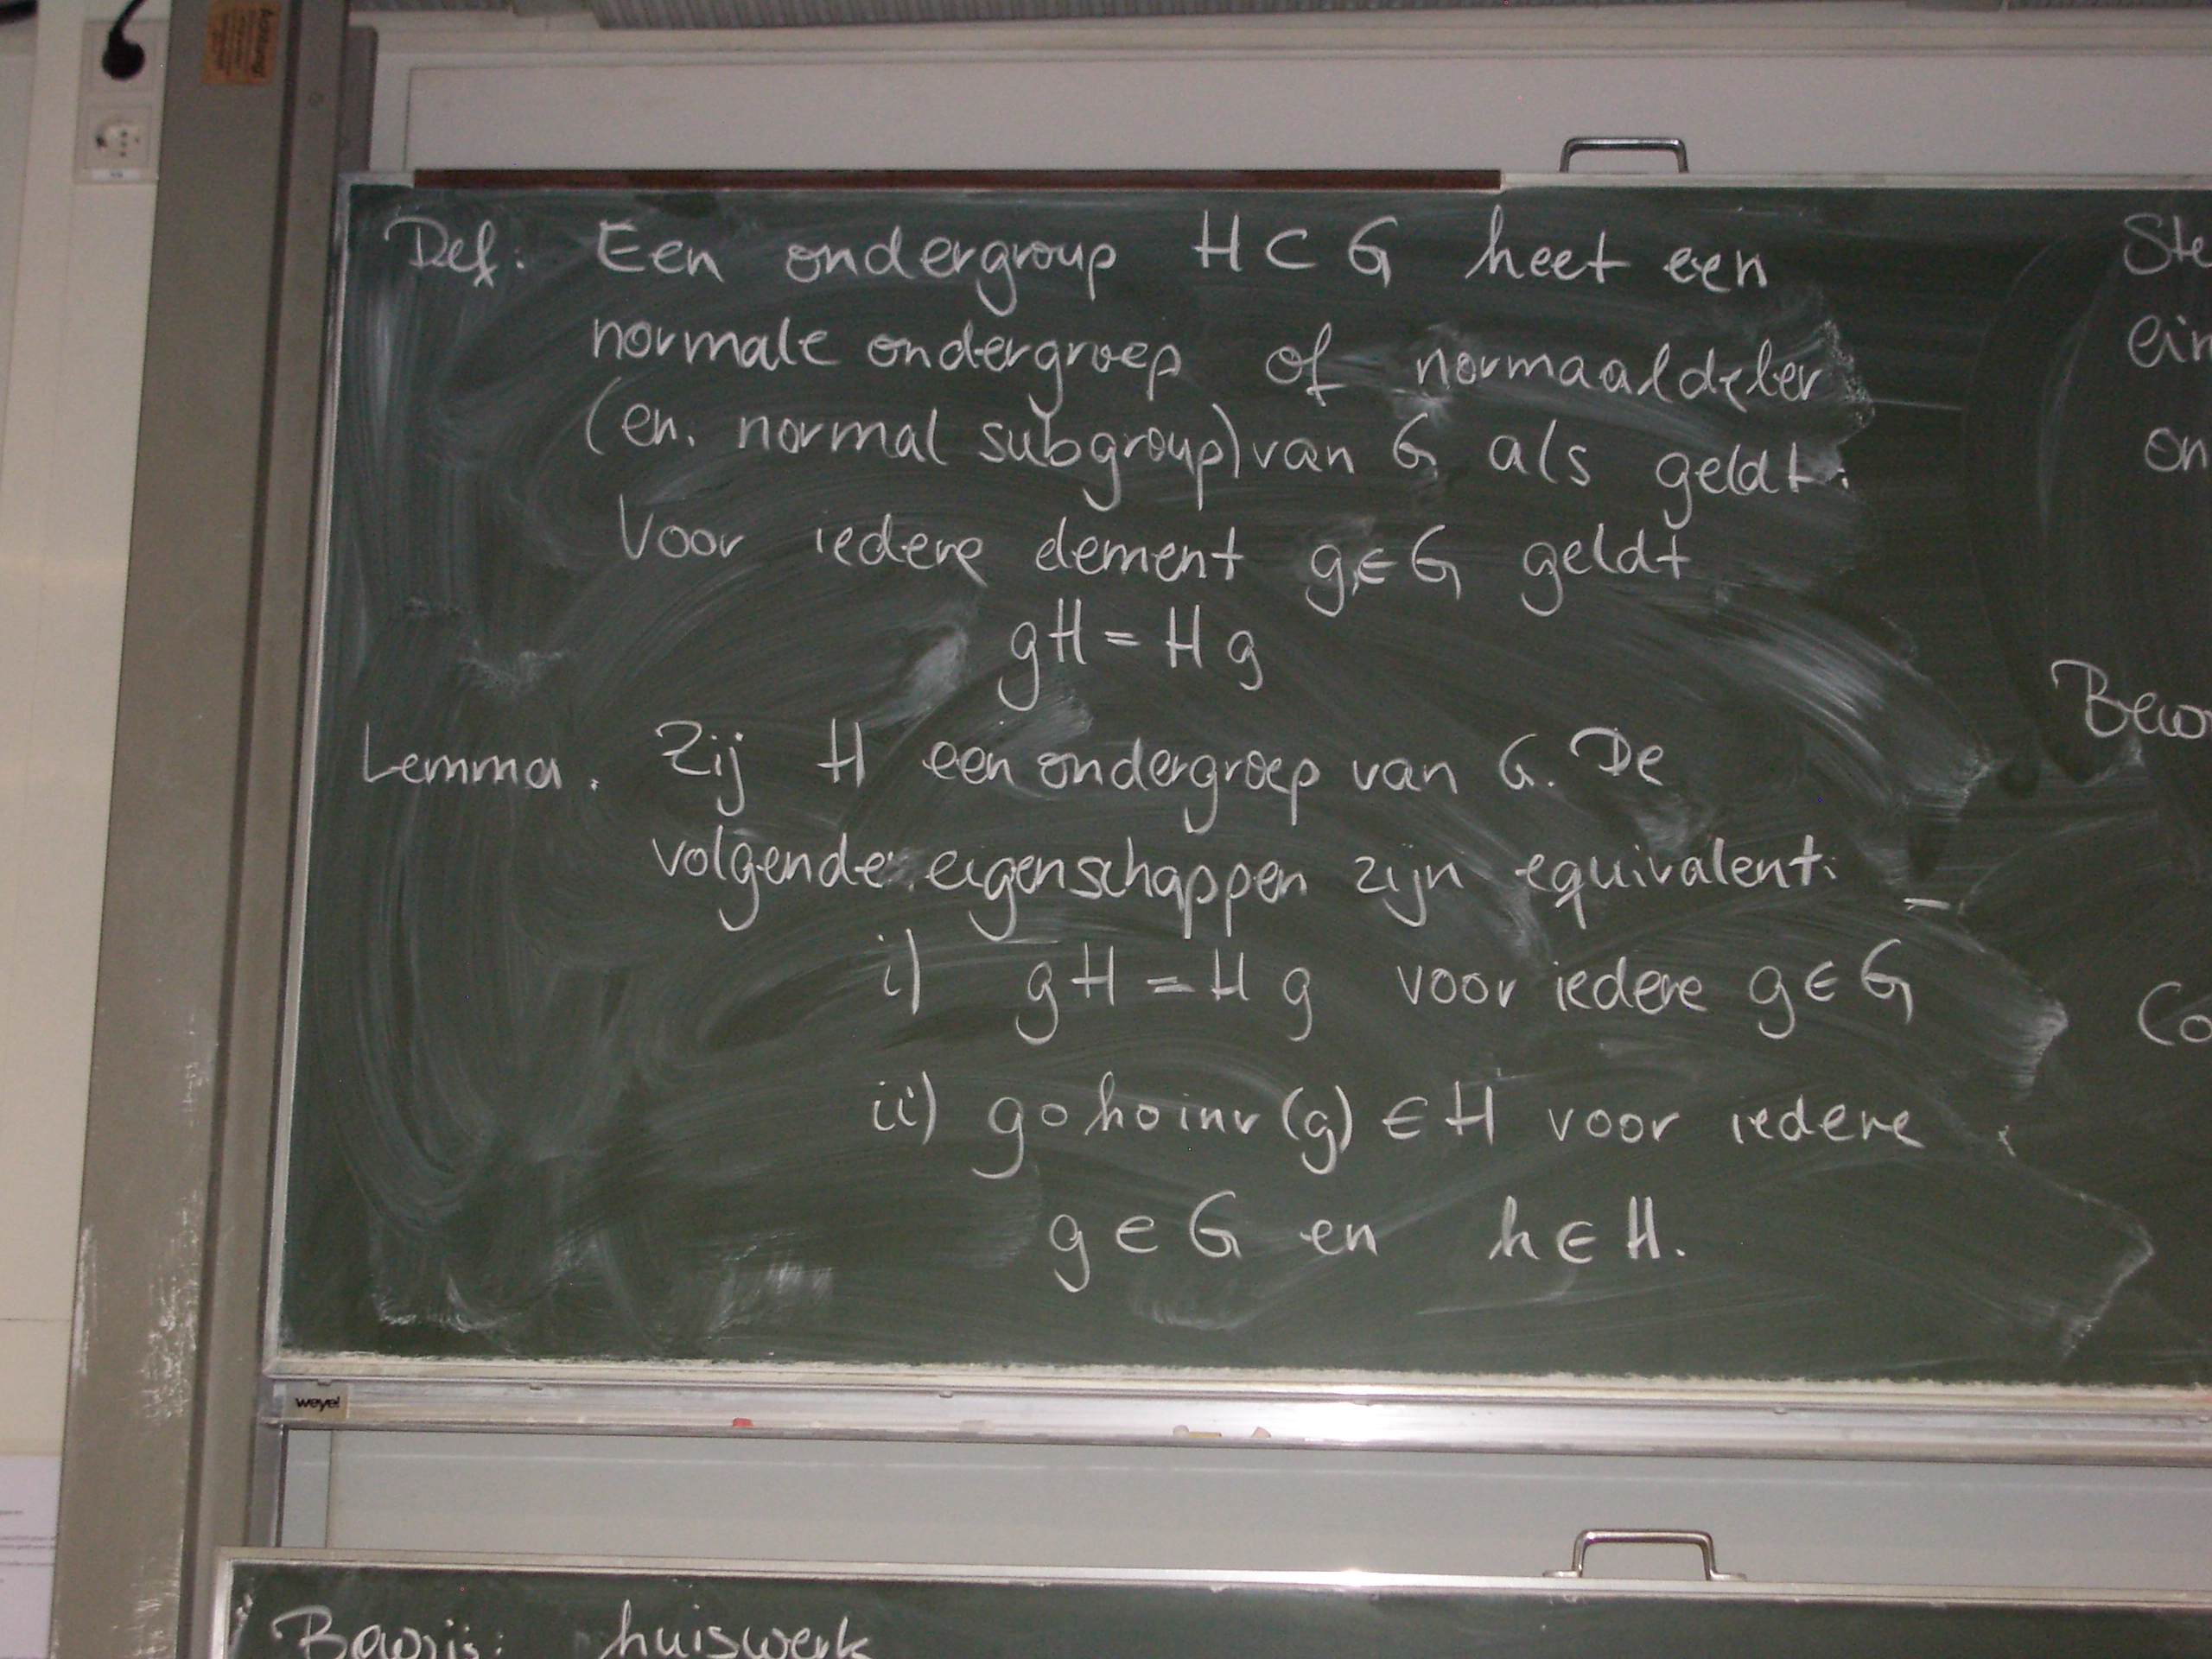 Def: Een ondergroup H ⊂ G heet een
normale ondergroep of normaaldeler
(en. normal subgroup) van G als geldt:
Voor iedere element g ∈ G geldt
gH = Hg
Lemma. Zij H een ondergroep van G. De
volgende eigenschappen zijn equivalent:
i) gH = Hg voor iedere g ∈ G
ii) g∘h∘inv(g) ∈ H voor iedere
g ∈ G en h ∈ H.
weyel
Bewijs: huiswerk